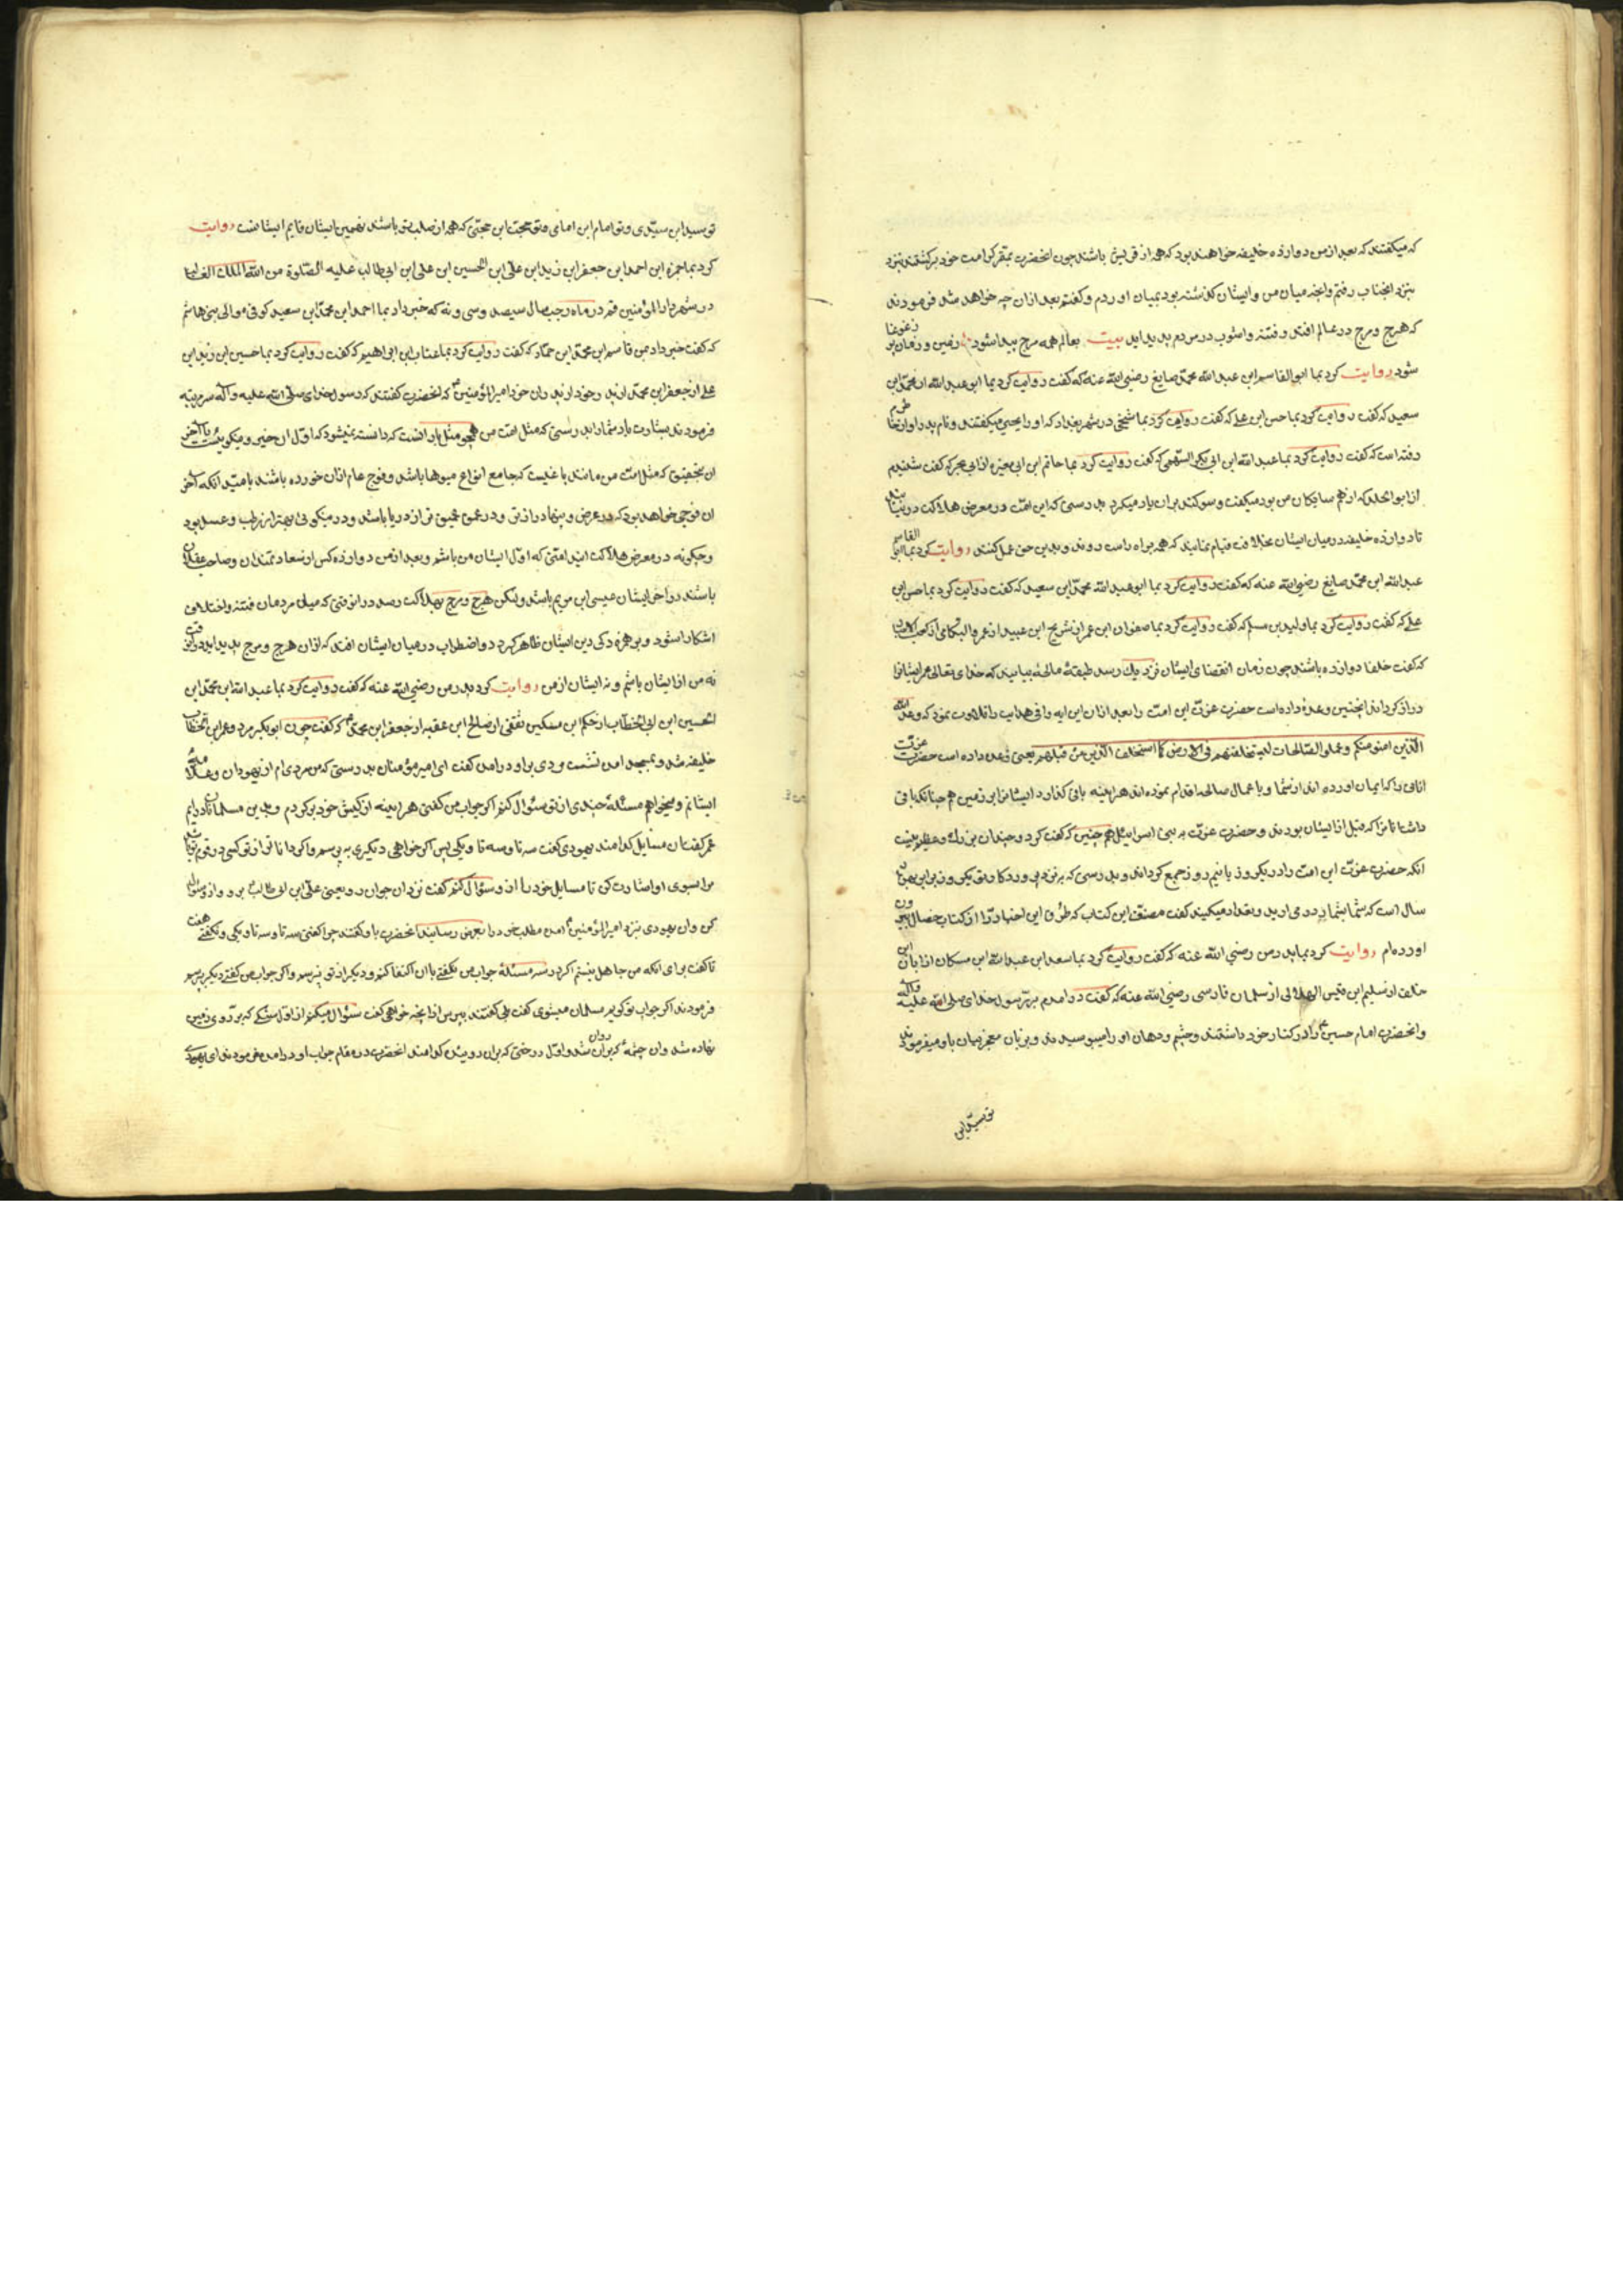 که میکفتند که بعد از من دوازده خلیفه خواهند بود که همه از قریش باشند چون انحضرت بمقر کرامت خود برکشتند نیزد
بنزد انجناب رفتم وانچه میان من وایشان کذشته بود بمیان اوردم وکفتم بعد ازان چه خواهد شد فرمودند
که هرج ومرج در عالم افتد وفتنه واشوب در مردم پدید اید بیت بعالم همه مرج پیدا شود زمین و زمان پر زغوغا
شود روایت کرد بما ابوالقاسم ابن عبد الله محمد صایغ رضی الله عنه که کفت روایت کرد بما ابو عبد الله محمد ابن
سعید که کفت روایت کرد بما حسن ابن علی که کفت روایت کرد بما شیخی در شهر بغداد که او را یحیی میکفتند ونام پدر او از خاطرم
رفته است که کفت روایت کرد بما عبد الله ابن ابی بکر السهمی که کفت روایت کرد بما حاتم ابن ابی مغیره از ابی بحر که کفت شنیدم
از ابو الخلد که از هم سایکان من بود میکفت وسوکند بران یاد میکرد بدرستی که این امت در معرض هلاکت در نیاید
تا دوازده خلیفه درمیان ایشان بخلافت قیام نمایند که همه براه راست روند وبدین حق عمل کنند روایت کرد بما ابو القاسم
عبد الله ابن محمد صایغ رضی الله عنه که کفت روایت کرد بما ابو عبد الله محمد ابن سعید که کفت روایت کرد بما حسن ابن
علی که کفت روایت کرد بما ولید بن مسلم که کفت روایت کرد بما صفوان ابن عمر از شریح ابن عبید از عمرو البکامی از کعب الاحبار
که کفت خلفا دوازده باشند چون زمان انقضای ایشان نزدیک رسد طبقهٔ صالحه بیایید که خدای تعالی عمر ایشانرا
دراز کرداند اینچنین وعده داده است حضرت عزت این امت را بعد ازان این ایه وافی هدایت را تلاوت نمود که وعد الله
الذین امنو منکم وعملو الصالحات لیستخلفنهم فی الارض کما استخلف الذین من قبلهم یعنی وعده داده است حضرت عزت
انانی را که ایمان اورده اند از شما وباعمال صالحه اقدام نموده اند هراینه باقی کذارد ایشانرا بر زمین هم چنانکه باقی
داشتانانرا که قبل از ایشان بودند وحضرت عزت به بنی اسراییل هم چنین که کفت کرد وچندان بزرک وعظیم نیست
انکه حضرت عزت این امت را در یکروز یا نیم روز جمع کرداند وبدرستی که بر نزد پروردکار تو یکروز برابر هزار
سال است که شما بشمار در می ارید وتعداد میکنید کفت مصنف این کتاب که طرق این اخبار را از کتاب خصال بیرون
اورده ام روایت کرد بما پدر من رضی الله عنه که کفت روایت کرد بما سعد ابن عبد الله ابن مسکان از ابان ابن
خلف از سلیم ابن قیس الهلالی از سلمان فارسی رضی الله عنه که کفت در امدم برسول خدای صلی الله علیه واله
وانحضرت امام حسین را در کنار خود داشتند وچشم ودهان او را میبوسیدند وبزبان معجز بیان باو میفرمودند
تو سید ابن
تو سید ابن سیدی وتو امام ابن امامی وتو حجت ابن حجتی که همه از صلب تو باشند نهمین ایشان قایم ایشانست روایت
کرد بما حمزه ابن احمد ابن جعفر ابن زید ابن علی ابن الحسین ابن علی ابن ابی طالب علیه الصلوة من الله الملک الغالب
در شهر دار المؤمنین قم در ماه رجب سال سیصد وسی ونه که خبر داد بما احمد ابن محمد ابن سعید کوفی موالی بنی هاشم
که کفت خبر داد بمن قاسم ابن محمد ابن حماد که کفت روایت کرد بما غیاث ابن ابراهیم که کفت روایت کرد بما حسین ابن زید ابن
علی از جعفر ابن محمد از پدر خود از پدران خود امیر المؤمنین که انحضرت کفتند که رسول خدای صلی الله علیه واله سه مرتبه
فرمودند بشارت باد شما را بدرستی که مثل امت من همچو مثل بارانست که دانسته نمیشود که اول ان خیر ومیکویند یا اخر
ان بتحقیق که مثل امت من مانند باغیست که جامع انواع میوها باشد وفوج عام ازان خورده باشند بامتید انکه اخر
ان فوجی خواهد بود که در عرض وپهنا دراز تر ودر عمق عمیق تر از دریا باشد ودر نیکوئی بهتر از رطب وعسل بود
وچکونه در معرض هلاکت اید امتی که اول ایشان من باشم وبعد از من دوازده کس از سعادتمندان وصاحب عقلان
باشند ودر اخر ایشان عیسی ابن مریم باشد ولکن هرج ومرج بهلاکت رسد در انوقتی که میان مردمان فتنه واختلاف
اشکارا شود
نه من از ایشان باشم ونه ایشان از من روایت کرد پدر من رضی الله عنه که کفت روایت کرد بما عبد الله ابن محمد ابن
الحسین ابن ابی الخطاب از حکم ابن مسکین ثقفی از صالح ابن عقبه از جعفر ابن محمد که کفت چون ابو بکر مرد وعمر ابن الخطاب
خلیفه شد وبمسجد امده نشست ودی براو در امده کفت ای امیر مؤمنان بدرستی که من مردی ام از یهودان وعلامهٔ
ایشانم ومیخواهم مسئلهٔ چندی از تو سئوال کنم اکر جواب من کفتی هراینه از کیش خود برکردم وبدین مسلمانان درایم
عمر کفت ان مسایل کدامند یهودی کفت سه تا وسه تا ویکی پس اکر خواهی دیکری به پرسم واکر دانا تر از تو کسی در قوم تو باشد
مرا بسوی او اشارت کن تا مسایل خود را ازو سئوال کنم کفت نزد ان جوان رو یعنی علی ابن ابی طالب برو واز وسئوال
کن وان یهودی نزد امیر المؤمنین امده مطلب خود را بعرض رسانید انحضرت باو کفتند چرا کفتی سه تا وسه تا ویکی ونکفتی هفت
تا کفت برای انکه من جاهل نیستم اکر در سه مسئلهٔ جواب من نکفتی بان اکتفا کنم ودیکر از تو نپرسم واکر جواب من کفتی دیکر بپرسم
فرمودند اکر جواب تو کویم مسلمان میشوی کفت بلی کفتند بپرس از انچه خواهی کفت سئوال میکنم از اول سنکی که بر روی زمین
نهاده شد وان چشمهٔ که روان شد واول درختی که بران روییده کدامند انحضرت در مقام جواب او در امده فرمودند ای یهودی